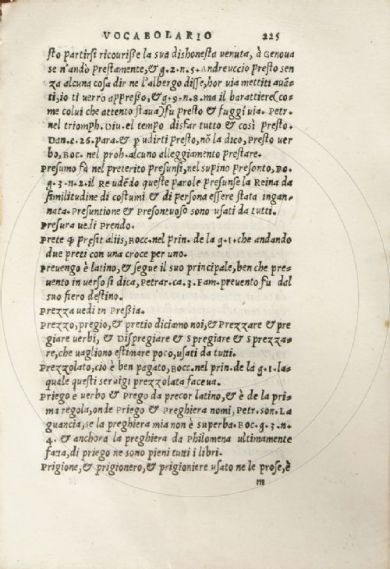 VOCABOLARIO 225
sto partirsi ricourisse la sua dishonesta venuta, à Genoua
se n'andò prestamente, & g.2.n.5. Andreuccio Presto sen
za alcuna cosa dir ne l'albergo disse, hor via mettiti auāe
ti, io ti verro appresso, & g.9.n.8. ma il barattiere (co
me colui che attento staua) fu presto & fuggi via. Petr.
nel triomph. Diu. el tempo disfar tutto & così Presto.
Dan. c.26. para. & p udirti presto, nō la dico, Presto ver
bo, Boc. nel proh. alcuno alleggiamento Prestare.
Presumo fà nel preterito Presunsi, nel supino Presonto, Bo.
g.3.n.2. il Re udēdo queste parole Presunse la Reina da
similitudine di costumi & di Persona essere stata ingan-
nata. Presuntione & Presontuoso sono usati da tutti.
Presura uedi Prendo.
Prete ꝑ Presit aliis, Bocc. nel prin. de la g.1. che andando
due Preti con una croce per uno.
Preuengo è latino, & segue il suo principale, ben che pre-
uento in verso si dica, Petrar. ca.3. Fam. preuento fu dal
suo fiero destino.
Prezza uedi in Pressia.
Prezzo, pregio, & pretio diciamo noi, & Prezzare & pre
giare uerbi, & Dispregiare & Spregiare & Sprezza-
re, che uagliono estimare poco, usati da tutti.
Prezzolato, cio è ben pagato, Bocc. nel prin. de la g.1. la-
quale questi seruigi prezzolata faceua.
Priego e uerbo & Prego da precor latino, & è de la pri-
ma regola, onde Priego & Preghiera nomi, Petr. son. La
guancia, se la preghiera mia non è superba. Boc. g.3.n.
4. & anchora la preghiera da Philomena ultimamente
fatta, di priego ne sono pieni tutti i libri.
Prigione, & prigionero, & prigioniere usato ne le prose, è
m